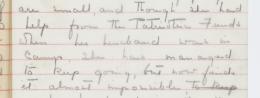 are small, and though she had
help from the Funds
when her husband was in
Camp. She has managed
to keep going, but now finds
it almost impossible to keep